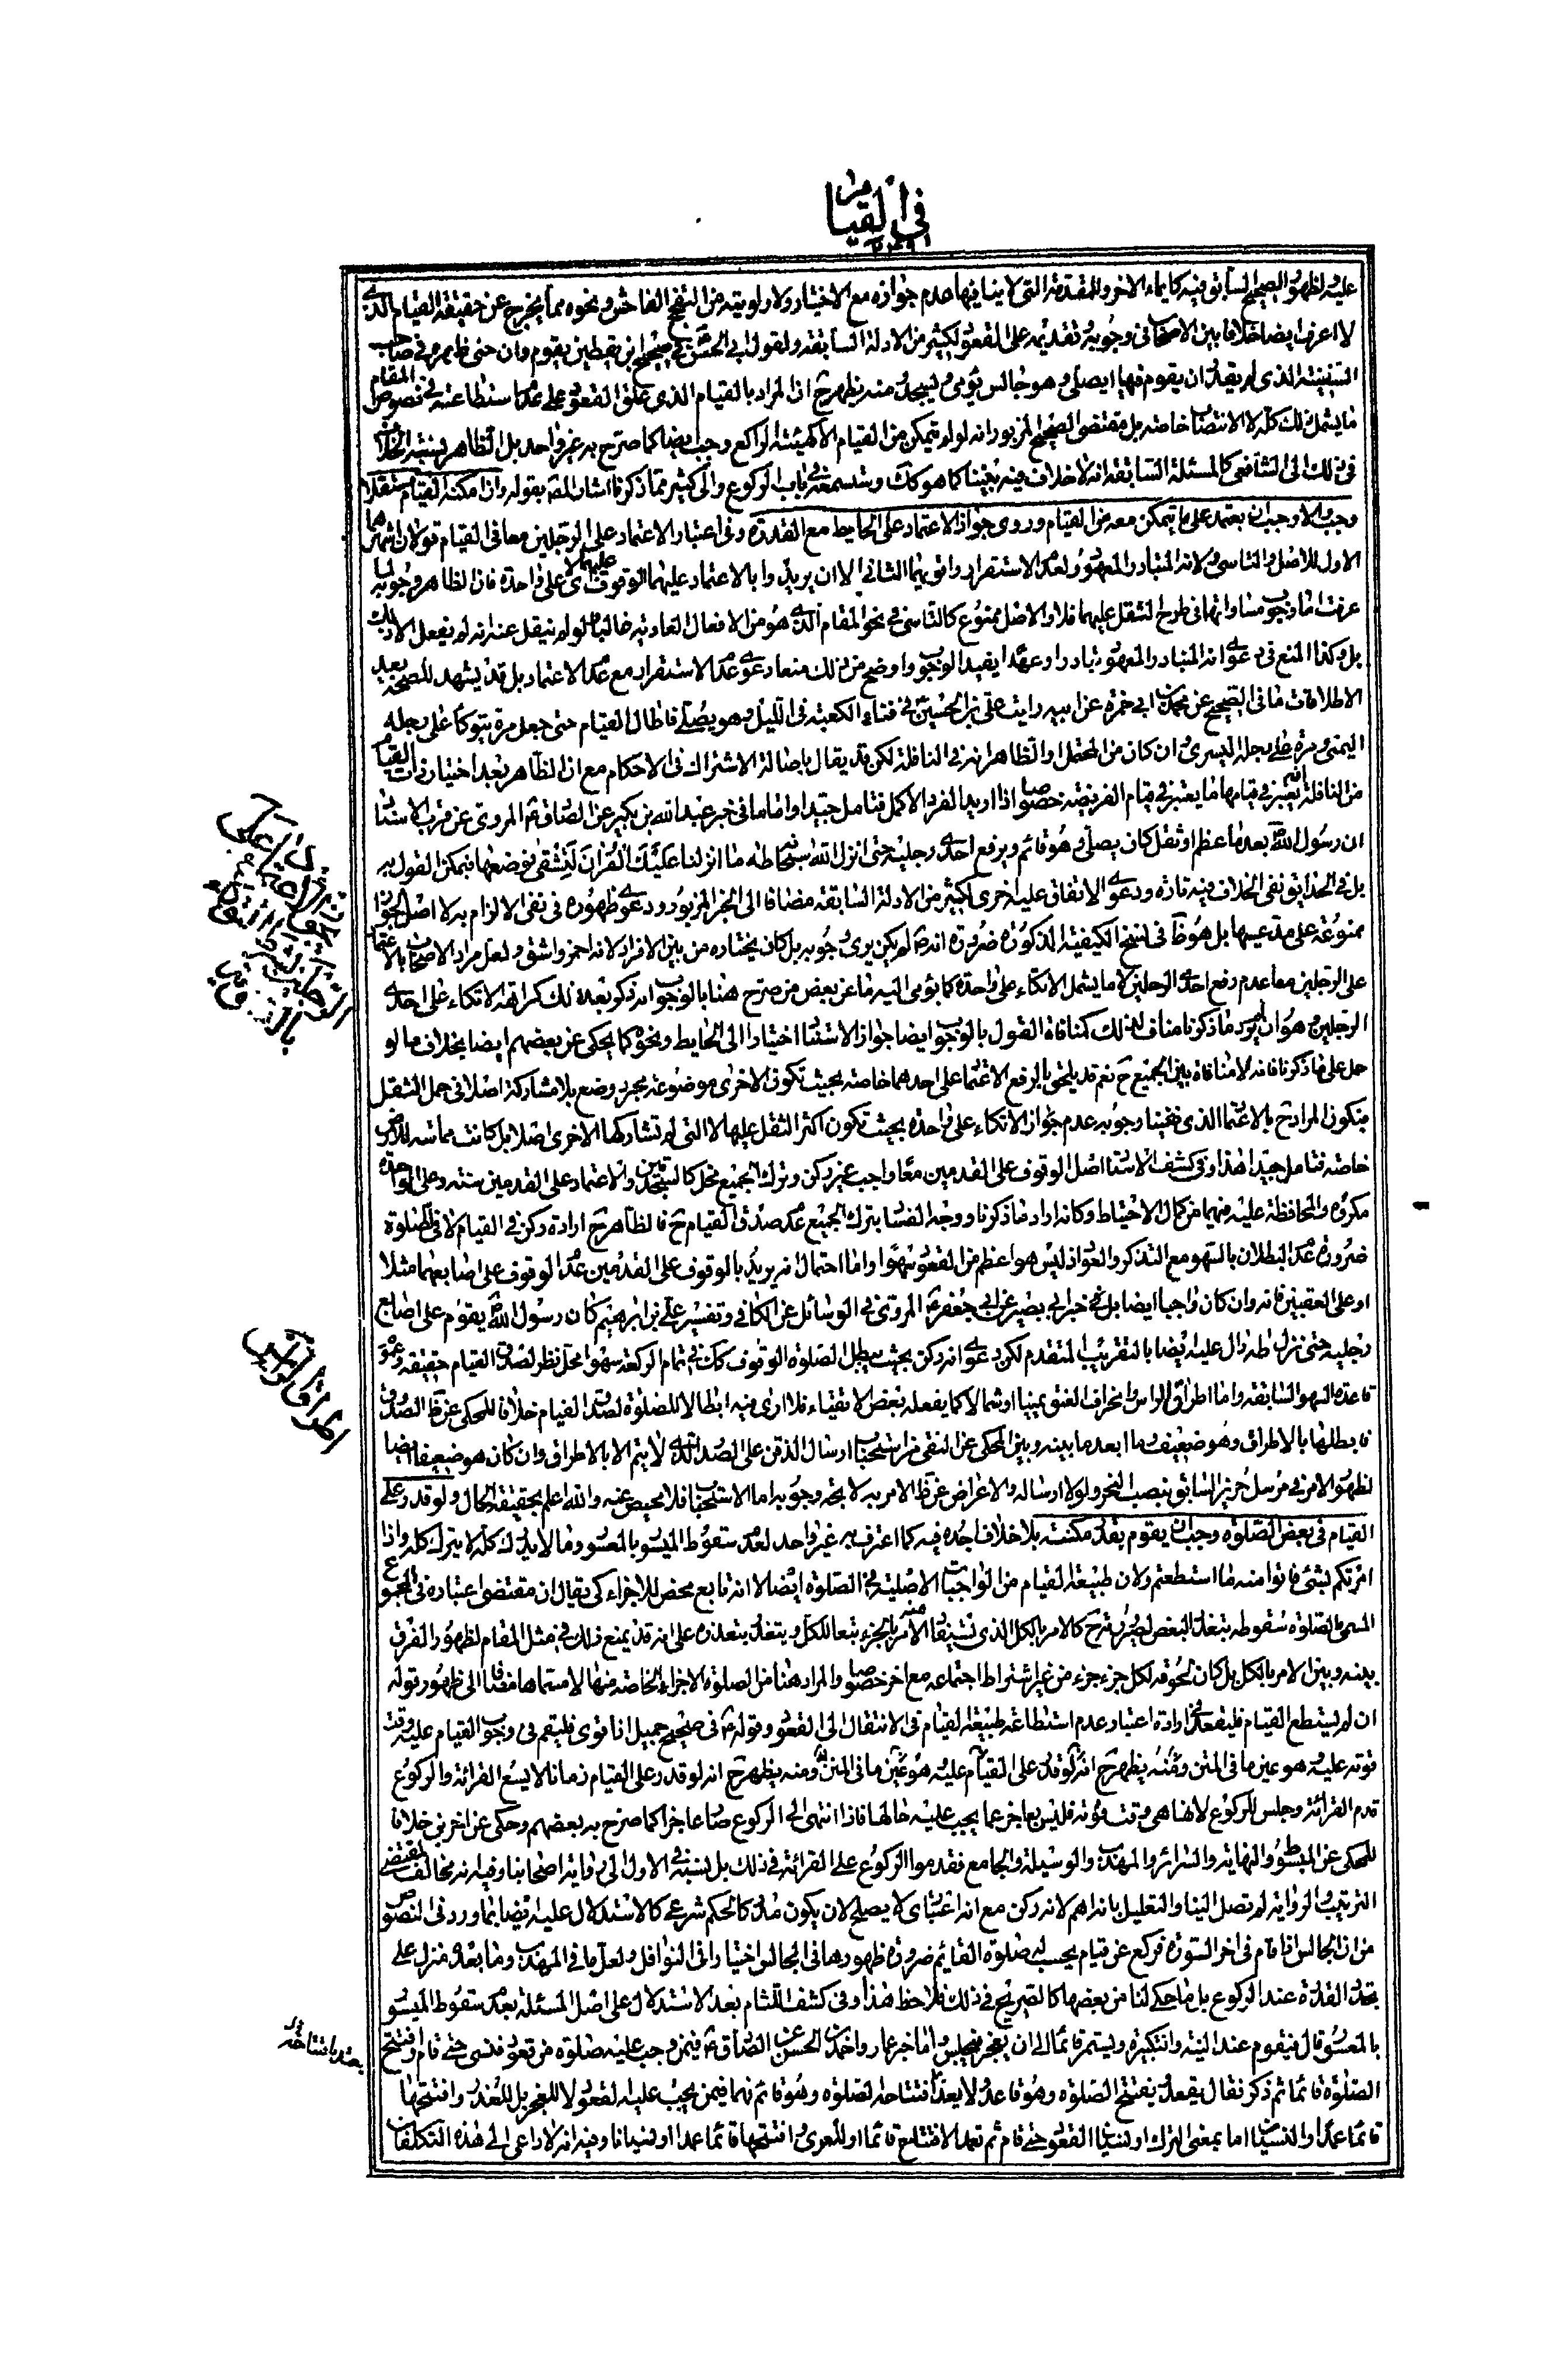 في القيام
عليه لظهور الصحيح السابق فيه كايماء الاخر والمقدمة التى لا ينافيها عدم جوازه مع الاختيار ولا اولويته من التفحج الفاحش ونحوه مما يخرج عن حقيقة القيام الذى
لا اعرف ايضا خلافا بين الاصحاب فى وجوبه وتقديمه على القعود لكثير من الادلة السابقة ولقول ابى الحسن ع فى صحيح ابن يقطين يقوم وان حنى ظهره فى صاحب
السفينة الذى لم يقدر ان يقوم فيها ايصلى وهو جالس يؤمى او يسجد ومنه يظهر ح ان المراد بالقيام الذى علق القعود على عدم استطاعته فى نصوص المقام
ما يشمل ذلك كله لا الانتصاب خاصة بل مقتضى الصحيح المزبور انه لو لم يتمكن من القيام الا كهيئة الراكع وجب ايضا كما صرح به غير واحد بل الظاهر نسبة الخلاف
فى ذلك الى الشافعى كالمسئلة السابقة انه لا خلاف فيه بيننا كما هو كك وستسمعه فى باب الركوع والى كثير مما ذكرنا اشار المصـ بقوله وان امكنه القيام مستقلا
وجب والا وجب ان يعتمد على ما يتمكن معه من القيام وروى جواز الاعتماد على الحايط مع القدرة وفى اعتبار الاعتماد على الرجلين معا فى القيام قولان اشهرهما
الاول للاصل والتاسى ولانه المتبادر والمعهود ولعدم الاستقرار واقويهما الثانى الا ان يريدوا بالاعتماد عليهما الوقوف عليهما لا على واحدة فان الظاهر وجوبه لما
عرفت اما وجوب مساواتهما فى طرح الثقل عليهما فلا والاصل ممنوع كالتاسى فى نحو المقام الذى هو من الافعال العادية غالبا ولو لم ينقل عنه انه لم يفعل الا ذلك
بل وكذا المنع فى دعوى انه المتبادر والمعهود تبادرا وعهدا يفيد الوجوب واوضح من ذلك منعا دعوى عدم الاستقرار مع عدم الاعتماد بل قد يشهد للصحة بعد
الاطلاقات ما فى الصحيح عن محمد بن ابى حمزة عن ابيه رايت على بن الحسين ع فى فناء الكعبة فى الليل وهو يصلى فاطال القيام حتى جعل مرة يتوكأ على رجله
اليمنى ومرة على رجله اليسرى وان كان من المحتمل او الظاهر انه فى النافلة لكن قد يقال باصالة الاشتراك فى الاحكام مع ان الظاهر بعد اختيار ذات القيام
من النافلة انه يعتبر فى قيامها ما يعتبر فى قيام الفريضة خصوصا اذا اريد الفرد الاكمل فتامل جيدا واما ما فى خبر عبد الله بن بكير عن الصادق ع المروى عن قرب الاسناد
ان رسول الله ص بعد ما عظم او ثقل كان يصلى وهو قائم ويرفع احدى رجليه حتى انزل الله سبحانه طه ما انزلنا عليك القران لتشقى فوضعها فيمكن القول به
بل فى الحدايق نفى الخلاف فيه تارة ودعوى الاتفاق عليه اخرى لكثير من الادلة السابقة مضافا الى الخبر المزبور ودعوى ظهوره فى نفى الالزام به لا اصل الجواز
ممنوعة على مدعيها بل هو ظـ فى نسخ الكيفية المذكورة ضرورة انه ص لم يكن يرى وجوبه بل كان يختاره من بين الافراد لانه احمز واشق ولعل مراد الاصحاب بالاعتماد
على الرجلين معا عدم رفع احدى الرجلين لا ما يشمل الاتكاء على واحدة كما يؤمى اليه ما عن بعض من صرح هنا بالوجوب انه ذكر بعد ذلك كراهة الاتكاء على احدى
الرجلين وهو ان لم يرد ما ذكرنا مناف لذلك كمنافاة القول بالوجوب ايضا جواز الاستناد اختيارا الى الحايط ونحوه كما يحكى عن بعضهم ايضا بخلاف ما لو
حمل على ما ذكرنا فانه لا منافاة بين الجميع ح نعم قد يلحق بالرفع الاعتماد على احدهما خاصة بحيث تكون الاخرى موضوعة مجرد وضع بلا مشاركة اصلا فى حمل الثقل
فيكون المراد ح بالاعتماد الذى نفينا وجوبه عدم جواز الاتكاء على واحدة بحيث تكون اكثر الثقل عليها لا التى لم تشاركها الاخرى اصلا بل كانت مماسة للارض
خاصة فتامل جيدا هذا وفى كشف الاستاد اصل الوقوف على القدمين معا واجب غير ركن وترك الجميع مخل كالسجدتين والاعتماد على القدمين سنة وعلى الواحدة
مكروه والمحافظة عليه فيهما من كمال الاحتياط وكانه اراد ما ذكرنا ووجه الفساد بترك الجميع عدم صدق القيام ح فالظاهر ح ارادة ركن فى القيام لا فى الصلوة
ضرورة عدم البطلان بالسهو مع التذكر والعود اذ ليس هو اعظم من القعود سهوا واما احتمال انه يريد بالوقوف على القدمين عدم الوقوف على اصابعهما مثلا
او على العقبين فانه وان كان واجبا ايضا بل فى خبر ابى بصير عن ابى جعفر ع المروى فى الوسائل عن الكافى وتفسير على بن ابرهيم كان رسول الله ص يقوم على اصابع
رجليه حتى نزل طه دال عليه ايضا بالتقريب المتقدم لكن دعوى انه ركن بحيث يبطل الصلوة الوقوف كك فى تمام الركعة سهوا محل نظر لصدق القيام حقيقة وعموم
قاعدة السهو السابقة واما اطراق الراس وانحراف العنق يمينا او شمالا كما يفعله بعض الاتقياء فلا ارى فيه ابطالا للصلوة لصدق القيام خلافا للمحكى عن ظـ الصدوق
فابطلها بالاطراق وهو ضعيف وما ابعد ما بينه وبين المحكى عن التقى من استحباب ارسال الذقن على الصدر الذى لا يتم الا بالاطراق وان كان هو ضعيفا ايضا
لظهور الامر فى مرسل حريز السابق بنصب النحر ولولا ارساله والاعراض عن ظـ الامر به لاتجه وجوبه اما الاستحباب فلا محيص عنه والله اعلم بحقيقة الحال ولو قدر على
القيام فى بعض الصلوة وجب ان يقوم بقدر مكنته بلا خلاف اجده فيه كما اعترف به غير واحد لعدم سقوط الميسور بالمعسور وما لا يدرك كله لا يترك كله واذا
امرتكم بشىء فاتوا منه ما استطعتم ولان طبيعة القيام من الواجبات الاصلية فى الصلوة ايضا لا انه تابع محض للاجزاء كى يقال ان مقتضى اعتباره فى المجموع
المسمى بالصلوة سقوطه بتعذر البعض لصيرورته ح كالامر بالكل الذى نشيقا منه الامر بالجزء تبعا للكل ويتعذر بتعذره على انه قد يمنع ذلك فى مثل المقام لظهور الفرق
بينه وبين الامر بالكل بل كان لحوقه لكل جزء جزء من غير اشتراط اجتماعه مع اخر خصوصا والمراد هنا من الصلوة الاجزاء الخاصة منها لا مسماها مضافا الى ظهور قوله
ان لم يستطع القيام فليقعد فى ارادة اعتبار عدم استطاعة طبيعة القيام فى الانتقال الى القعود وقوله ع فى صحيح جميل اذا قوى فليقم فى وجوب القيام عليه وقت
قوته عليه هو عين ما فى المتن ومنه يظهر ح انه لو قدر على القيام زمانا لا يسع القرائة والركوع
قدم القرائة وجلس للركوع لانها هى وقت قوته فليس بعاجز عما يجب عليه حالها فاذا انتهى الى الركوع صار عاجزا كما صرح به بعضهم وحكى عن اخرين خلافا
للمحكى عن المبسوط والنهاية والسرائر والمهذب والوسيلة والجامع فقدموا الركوع على القرائة فى ذلك بل نسبه فى الاول الى رواية اصحابنا وفيه انه مخالف لمقتضى
الترتيب والرواية لم تصل الينا والتعليل بانه اهم لانه ركن مع انه اعتبارى لا يصلح لان يكون مدركا لحكم شرعى كالاستدلال عليه ايضا بما ورد فى النصوص
من ان الجالس اذا قام فى اخر السورة فركع عن قيام يحسب له صلوة القائم ضرورة ظهورها فى الجالس اختيارا فى النوافل ولعل ما فى المهذب وما بعده منزل على
تجدد القدرة عند الركوع بل ما حكى لنا من بعضها كالصريح فى ذلك فلاحظ هذا وفى كشف اللثام بعد الاستدلال على اصل المسئلة بعدم سقوط الميسور
بالمعسور قال فيقوم عند النية والتكبيرة ويستمر قائما الى ان يعجز فيجلس واما خبر عمار واحمد بن الحسن عن الصادق ع فيمن وجب عليه صلوة من قعود فنسى حتى قام وافتتح
الصلوة قائما ثم ذكر فقال يقعد ويفتتح الصلوة وهو قاعد ولا يعتد بافتتاحه الصلوة وهو قائم فهما فيمن يجب عليه القعود لا للعجز بل للعذر وافتتحها
قائما عمدا والنسيان اما بمعنى الترك او لنسيان القعود حتى قام ثم تعمد الافتتاح قائما او للعرى وافتتحها قائما عمدا او نسيانا وفيه انه لا داعى الى هذه التكلفات
اطراق الراس